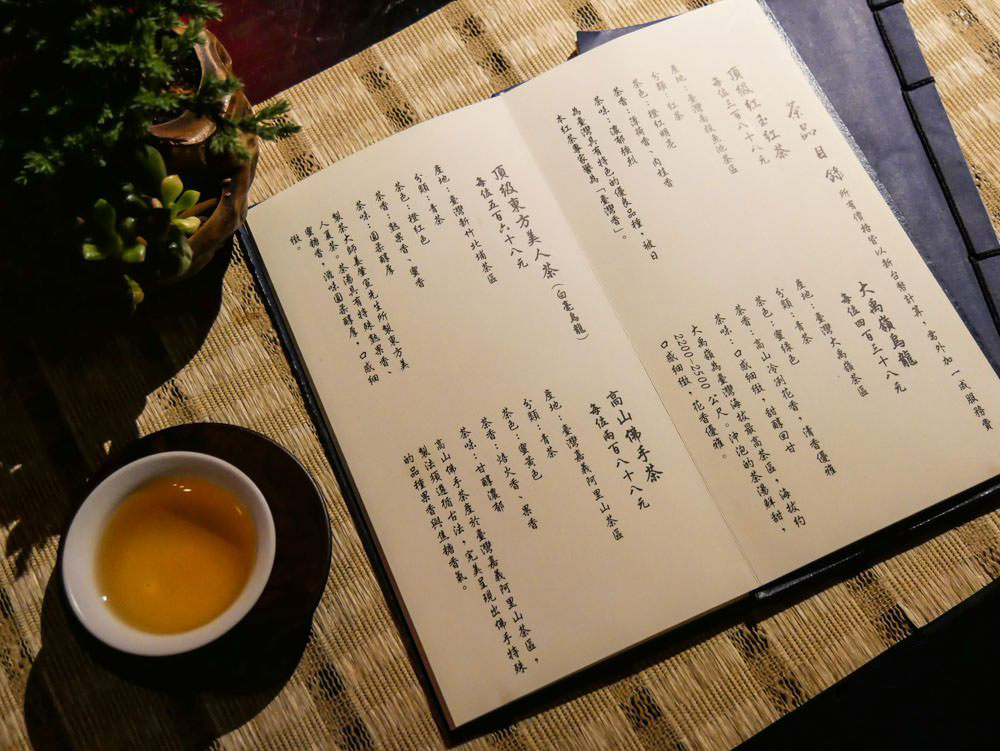 茶品目錄 所有價格皆以新台幣計算，需外加一成服務費
頂級紅玉紅茶
每位三百八十八元
產地：臺灣南投魚池茶區
分類：紅茶
茶色：橙紅明亮
茶香：薄荷香、肉桂香
茶味：濃郁強烈
為臺灣具有特色的優良品種，被日
本紅茶專家譽為「臺灣香」。
大禹嶺烏龍
每位四百三十八元
產地：臺灣大禹嶺茶區
分類：青茶
茶色：蜜綠色
茶香：高山冷冽花香，清香優雅
茶味：口感細緻，甜醇回甘
大禹嶺為臺灣海拔最高茶區，海拔約
2200-2500公尺。沖泡的茶湯鮮甜，
口感細緻，花香優雅。
頂級東方美人茶（白毫烏龍）
每位五百六十八元
產地：臺灣新竹北埔茶區
分類：青茶
茶色：橙紅色
茶香：熟果香、蜜香
茶味：圓柔醇厚
製茶大師姜肇宣先生所製東方美
人夏茶。茶湯具有特殊熟果香、
蜜糖香，滋味圓柔醇厚，口感細
緻。
高山佛手茶
每位兩百八十八元
產地：臺灣嘉義阿里山茶區
分類：青茶
茶色：蜜黃色
茶香：焙火香、果香
茶味：甘醇濃郁
高山佛手茶產於臺灣嘉義阿里山茶區，
製法須遵循古法，完美呈現出佛手特殊
的品種果香與焦糖香氣。